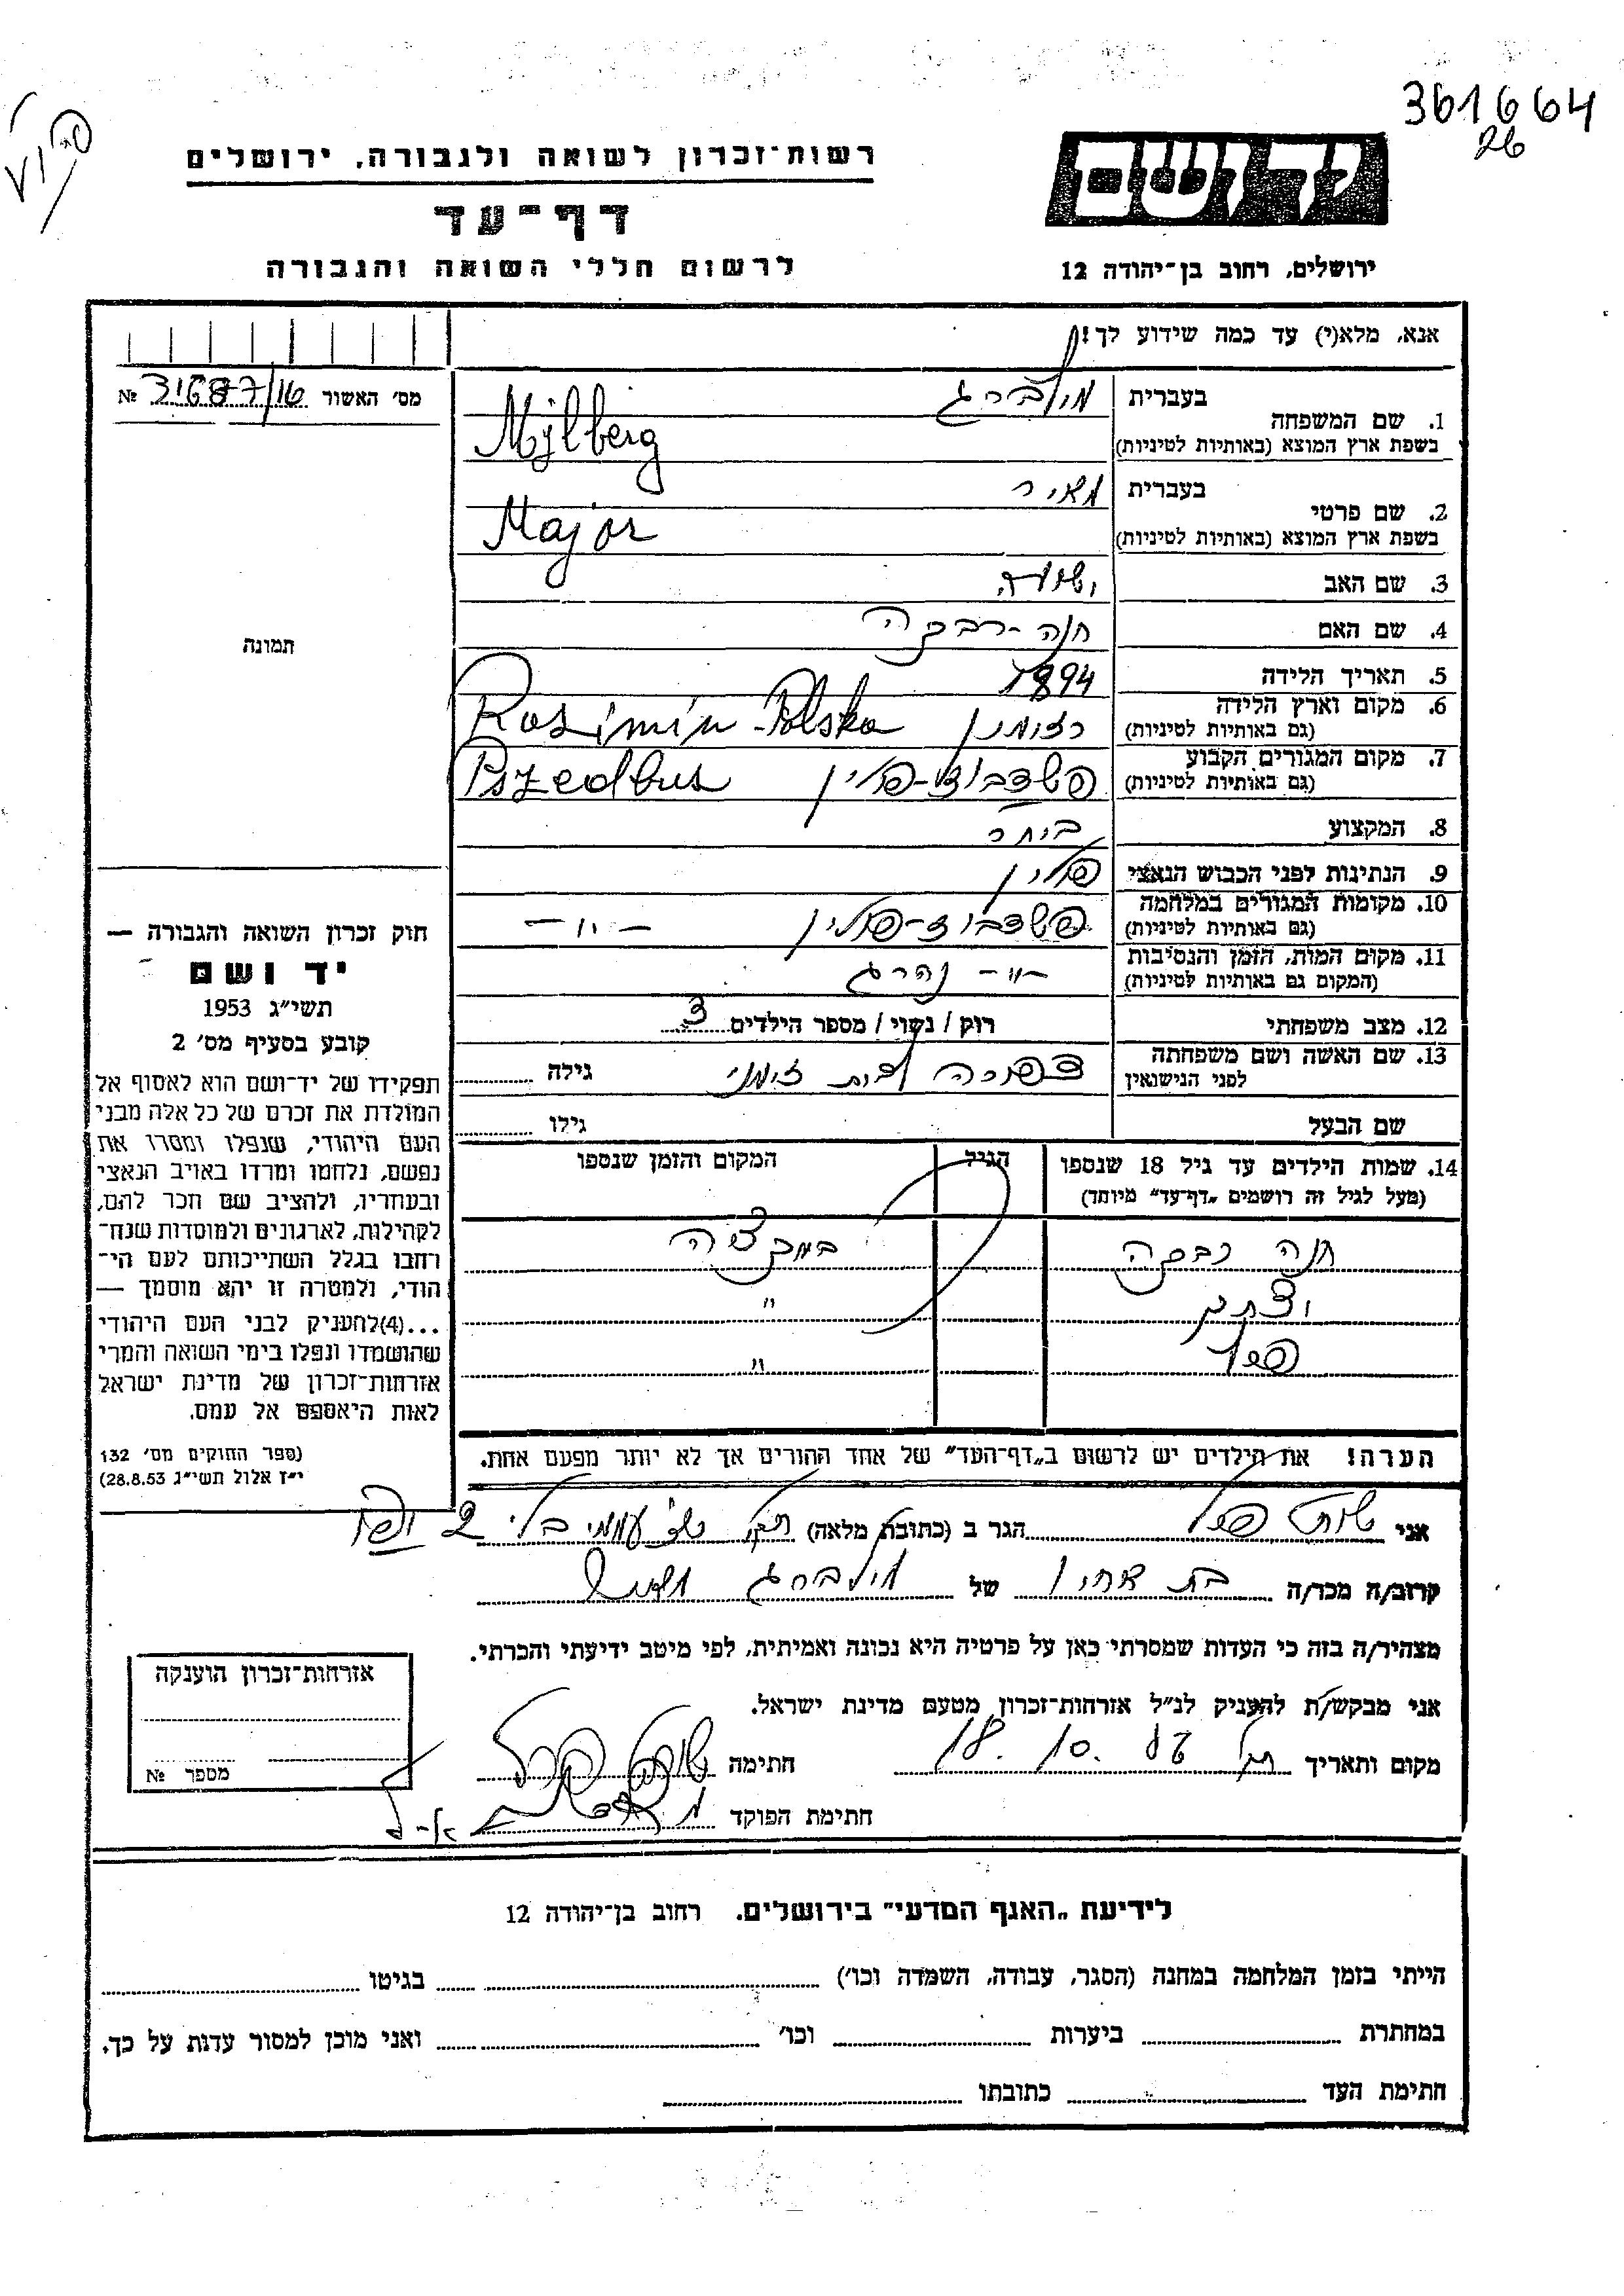 361664
26
רשות־זכרון לשואה ולגבורה, ירושלים
דף־עד
לרשום חללי השואה והגבורה
יד ושם
ירושלים, רחוב בן־יהודה 12
אנא, מלא(י) עד כמה שידוע לך!
מס׳ האשור №
בעברית מילברג
1. שם המשפחה
בשפת ארץ המוצא (באותיות לטיניות) Mylberg
בעברית מאיר
2. שם פרטי
בשפת ארץ המוצא (באותיות לטיניות) Major
3. שם האב
4. שם האם חנה-רבקה
5. תאריך הלידה 1894
6. מקום וארץ הלידה
(גם באותיות לטיניות) רדומין Rasimin-Polska
7. מקום המגורים הקבוע
(גם באותיות לטיניות) פשדבוז-פולין Pszedbus
8. המקצוע סוחר
9. הנתינות לפני הכבוש הנאצי פולין
10. מקומות המגורים במלחמה
(גם באותיות לטיניות) פשדבוז-פולין — " —
11. מקום המות, הזמן והנסיבות
(המקום גם באותיות לטיניות) -"- נהרג
12. מצב משפחתי רוק / נשוי / מספר הילדים 3
13. שם האשה ושם משפחתה
לפני הנישואין לבית גילה
שם הבעל גילו
14. שמות הילדים עד גיל 18 שנספו
(מעל לגיל זה רושמים „דף־עד” מיוחד)
הגיל
המקום והזמן שנספו
חנה רבקה
"
"
הערה! את הילדים יש לרשום ב„דף־העד” של אחד ההורים אך לא יותר מפעם אחת.
תמונה
חוק זכרון השואה והגבורה —
יד ושם
תשי״ג 1953
קובע בסעיף מס׳ 2
תפקידו של יד־ושם הוא לאסוף אל
המולדת את זכרם של כל אלה מבני
העם היהודי, שנפלו ומסרו את
נפשם, נלחמו ומרדו באויב הנאצי
ובעוזריו, ולהציב שם וזכר להם,
לקהילות, לארגונים ולמוסדות שנח־
רחבו בגלל השתייכותם לעם הי־
הודי, ולמטרה זו יהא מוסמך —
...(4)להעניק לבני העם היהודי
שהושמדו ונפלו בימי השואה והמרי
אזרחות־זכרון של מדינת ישראל
לאות היאספם אל עמם.
(ספר החוקים מס׳ 132
י״ז אלול תשי״ג 28.8.53)
אני הגר ב (כתובת מלאה)
קרוב/ה מכר/ה של מילברג
מצהיר/ה בזה כי העדות שמסרתי כאן על פרטיה היא נכונה ואמיתית, לפי מיטב ידיעתי והכרתי.
אני מבקש/ת להעניק לנ״ל אזרחות־זכרון מטעם מדינת ישראל.
מקום ותאריך 18. 10. חתימה
חתימת הפוקד
אזרחות־זכרון הוענקה
מספר №
לידיעת „האגף המדעי” בירושלים, רחוב בן־יהודה 12
הייתי בזמן המלחמה במחנה (הסגר, עבודה, השמדה וכו׳) בגיטו
במחתרת ביערות וכו׳ ואני מוכן למסור עדות על כך.
חתימת העד כתובתו